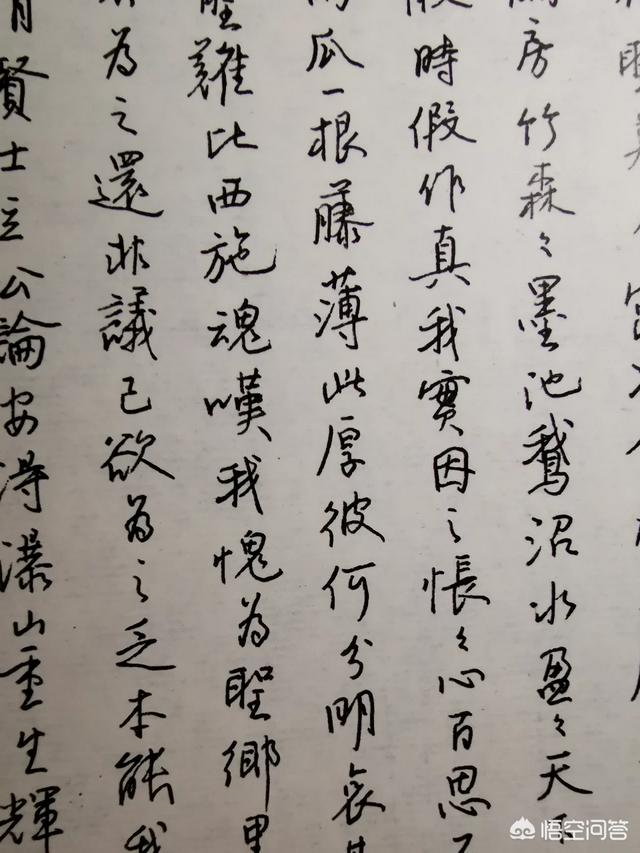 房竹森々墨池鵝沼水盈々天
時假作真我實因之悵々心百思
瓜一根藤薄此厚彼何分明哀
聖難比西施魂嘆我愧為聖鄉里
為之還非議己欲為之乏本能我
賢士立公論安得瀑山重生輝
悟空问答